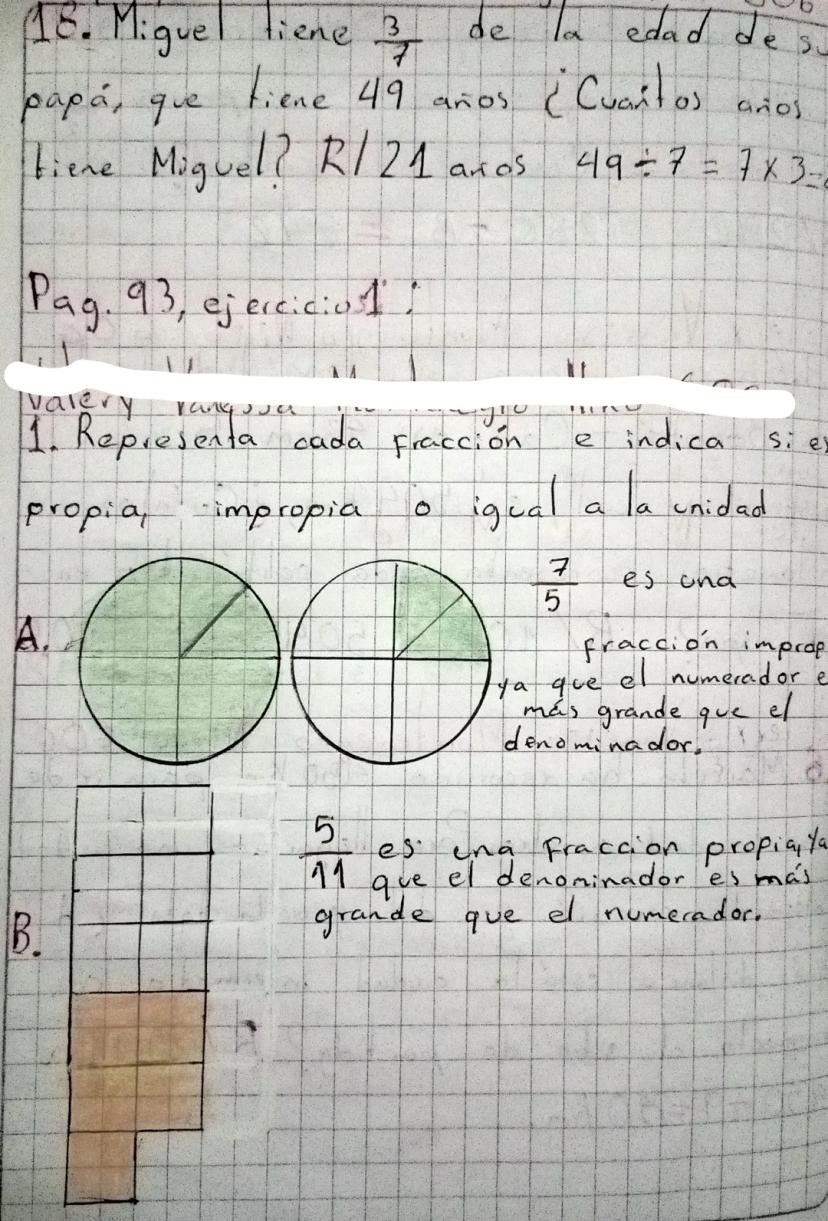 18. Miguel tiene 3/7 de la edad de su
papá, que tiene 49 años ¿Cuantos años
tiene Miguel? R/ 21 años 49÷7=7x3=
Pag. 93, ejercicios1:
Valery Vanessa
1. Representa cada fracción e indica si es
propia, impropia o igual a la unidad
A. 7/5 es una
fracción improp
ya que el numerador e
más grande que el
denominador.
B. 5/11 es una fraccion propia, ya
que el denominador es más
grande que el numerador.